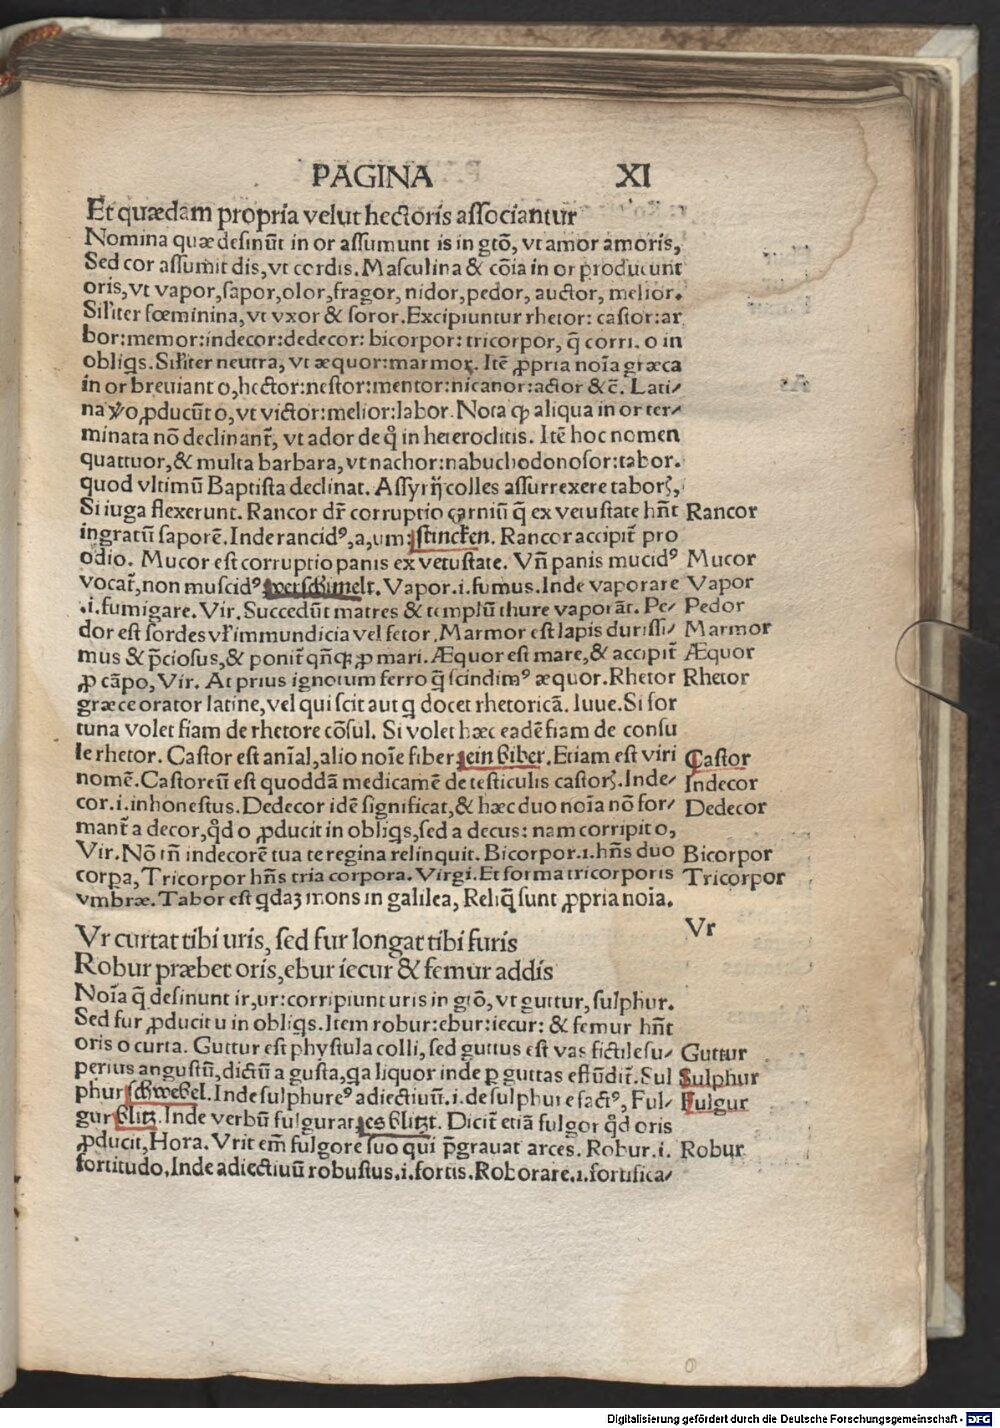 PAGINA XI
Et quædam propria velut hectoris associantur
Nomina quæ desinũt in or assumunt is in gtõ, vt amor amoris,
Sed cor assumit dis, vt cordis. Masculina & cõia in or producunt
oris, vt vapor, sapor, olor, fragor, nidor, pedor, auctor, melior.
Siliter fœminina, vt vxor & soror. Excipiuntur rhetor: castor: ar
bor: memor: indecor: dedecor: bicorpor: tricorpor, q̃ corri. o in
obliqs. Siliter neutra, vt æquor: marmor. Itẽ ꝓpria noĩa græca
in or breuiant o, hector: nestor: mentor: nicanor: actor &c̃. Lati⸗
na ṽo ꝓducũt o, vt victor: melior: labor. Nota ꝙ aliqua in or ter⸗
minata nõ declinant̃, vt ador de q̃ in heteroclitis. Itẽ hoc nomen
quattuor, & multa barbara, vt nachor: nabuchodonosor: tabor.
quod vltimũ Baptista declinat. Assyrij colles assurrexere taborꝝ,
Si iuga flexerunt. Rancor dr̃ corruptio carniũ q̃ ex vetustate hñt Rancor
ingratũ saporẽ. Inde rancidꝰ, a, um: stincken. Rancor accipit̃ pro
odio. Mucor est corruptio panis ex vetustate. Vñ panis mucidꝰ Mucor
vocat̃, non muscidꝰ verschimelt. Vapor .i. fumus. Inde vaporare Vapor
.i. fumigare. Vir. Succedũt matres & templũ thure vaporãt. Pe⸗ Pedor
dor est sordes vl̃ immundicia vel fetor. Marmor est lapis durissi⸗ Marmor
mus & p̃ciosus, & ponit̃ qñqꝫ ꝓ mari. Æquor est mare, & accipit̃ Æquor
ꝓ cãpo, Vir. At prius ignotum ferro q̃ scindimꝰ æquor. Rhetor Rhetor
græce orator latine, vel qui scit aut q docet rhetoricã. Iuue. Si for
tuna volet fiam de rhetore cõsul. Si volet hæc eadẽ fiam de consu
le rhetor. Castor est anĩal, alio noĩe fiber ein biber. Etiam est viri Castor
nomẽ. Castoreũ est quoddã medicamẽ de testiculis castorꝝ. Inde⸗ Indecor
cor .i. inhonestus. Dedecor idẽ significat, & hæc duo noĩa nõ for⸗ Dedecor
mant̃ a decor, q̃d o ꝓducit in obliqs, sed a decus: nam corripit o,
Vir. Nõ tñ indecorẽ tua te regina relinquit. Bicorpor .i. hñs duo Bicorpor
corpa, Tricorpor hñs tria corpora. Virgi. Et forma tricorporis Tricorpor
vmbræ. Tabor est qdaꝫ mons in galilea, Reliq̃ sunt ꝓpria noĩa.
Vr curtat tibi uris, sed fur longat tibi furis Vr
Robur præbet oris, ebur iecur & femur addis
Noĩa q̃ desinunt ir, ur: corripiunt uris in gtõ, vt guttur, sulphur.
Sed fur ꝓducit u in obliqs. Item robur: ebur: iecur: & femur hñt
oris o curta. Guttur est phystula colli, sed guttus est vas fictile su⸗ Guttur
perius angustũ, dictũ a gutta, qa liquor inde ꝑ guttas effũdit̃. Sul Sulphur
phur schwebel. Inde sulphureꝰ adiectiuũ .i. de sulphure factꝰ, Ful⸗ Fulgur
gur blitz. Inde verbũ fulgurat, es blitzt. Dicit̃ etiã fulgor q̃d oris
ꝓducit, Hora. Vrit em̃ fulgore suo qui p̃grauat artes. Robur .i. Robur
fortitudo, Inde adiectiuũ robustus .i. fortis. Roborare .i. fortifica⸗
Digitalisierung gefördert durch die Deutsche Forschungsgemeinschaft - DFG